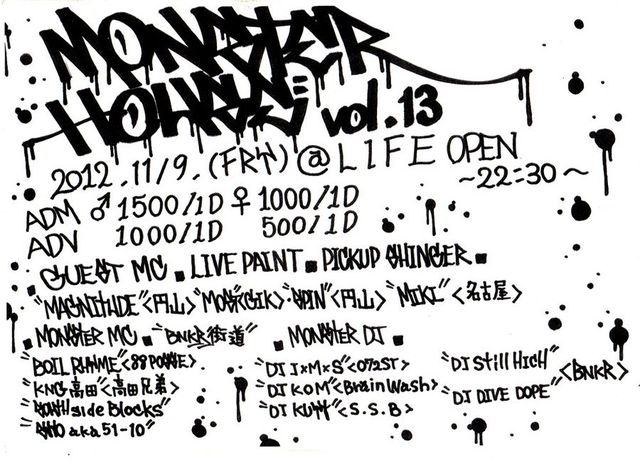 MONSTER
HOUSE vol.13
2012.11/9.(FRY)@LIFE OPEN
~22:30~
ADM ♂1500/1D ♀1000/1D
ADV 1000/1D 500/1D
.GUEST MC. LIVE PAINT. PICKUP SHINGER.
"MAGNITUDE"<円山> "MOSS"<GIK> "SPIN"<円山> "MIKI"<名古屋>
.MONSTER MC. "BNKR街道" .MONSTER DJ.
"BOIL RHYME"<88POSSE>
"KNG高田"<高田兄弟>
side Blocks"
aka 51-10"
"DJ J×M×S"<072ST>
"DJ KOM"<BrainWash>
<S.S.B>
"DJ Still HIGH"
"DJ DIVE DOPE"
<BNKR>